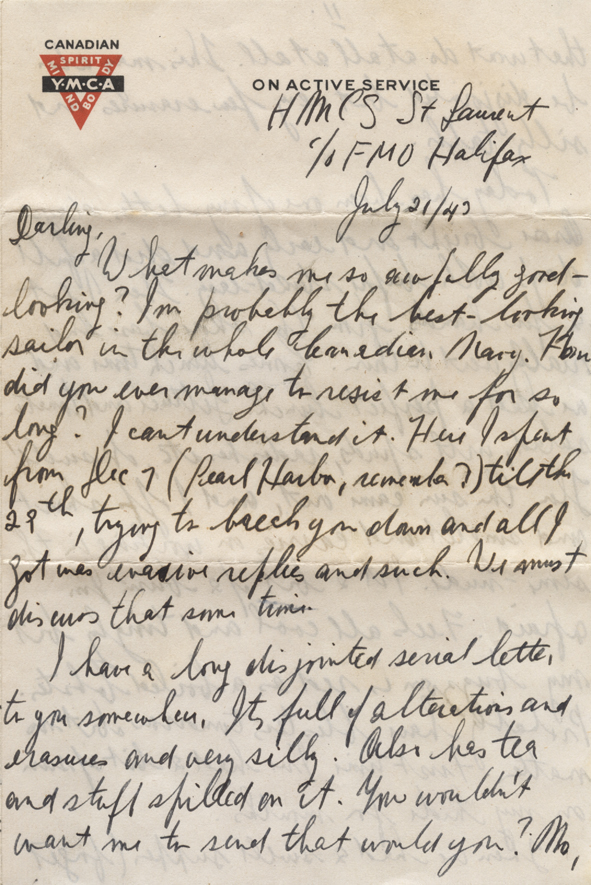 CANADIAN
SPIRIT
MIND
Y·M·C·A
BODY
ON ACTIVE SERVICE
HMCS St Laurent
c/o FMO Halifax
July 21/43
Darling,
What makes me so awfully good-
looking? Im probably the best-looking
sailor in the whole Canadian Navy. How
did you ever manage to resist me for so
long? I cant understand it. Here I spent
from Dec 7 (Pearl Harbor, remember?) till the
29th, trying to beech you down and all I
got was evasive replies and such. We must
discuss that some time.
I have a long disjointed serial letter
to you somewhere. Its full of alterations and
erasures and very silly. Also has tea
and stuff spilled on it. You wouldn't
want me to send that would you? No,